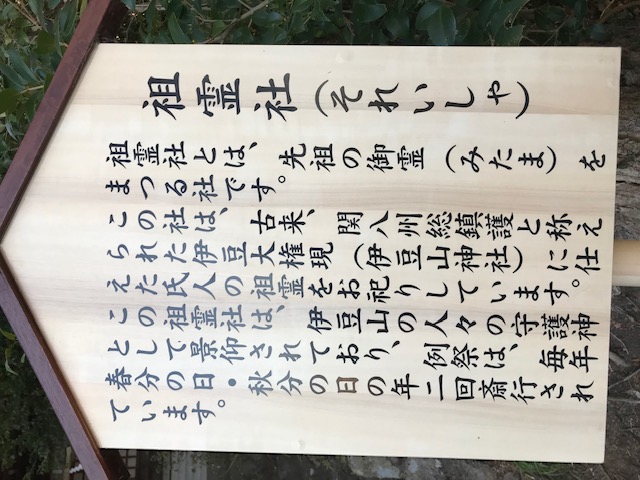 祖霊社（それいしゃ）
祖霊社とは、先祖の御霊（みたま）を
まつる社です。
この社は、古来、関八州総鎮護と称え
られた伊豆大権現（伊豆山神社）に仕え
えた氏人の祖霊をお祀りしています。
この祖霊社は、伊豆山の人々の守護神
として景仰されており、例祭は、毎年
春分の日・秋分の日の年二回斎行され
ています。